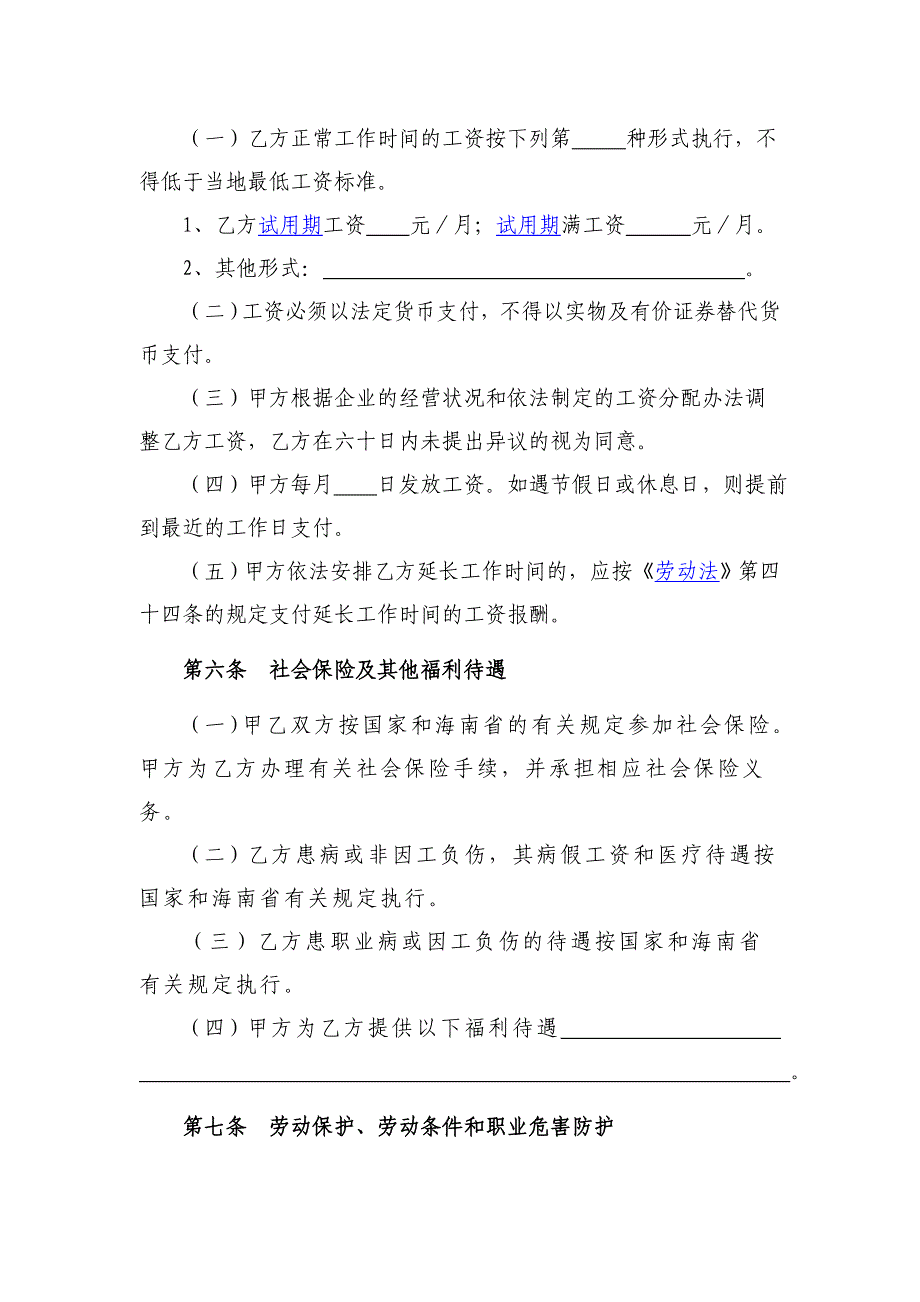 （一）乙方正常工作时间的工资按下列第_____种形式执行，不
得低于当地最低工资标准。
1、乙方试用期工资____元／月；试用期满工资______元／月。
2、其他形式：_______________________________________。
（二）工资必须以法定货币支付，不得以实物及有价证券替代货
币支付。
（三）甲方根据企业的经营状况和依法制定的工资分配办法调
整乙方工资，乙方在六十日内未提出异议的视为同意。
（四）甲方每月____日发放工资。如遇节假日或休息日，则提前
到最近的工作日支付。
（五）甲方依法安排乙方延长工作时间的，应按《劳动法》第四
十四条的规定支付延长工作时间的工资报酬。
第六条　社会保险及其他福利待遇
（一）甲乙双方按国家和海南省的有关规定参加社会保险。
甲方为乙方办理有关社会保险手续，并承担相应社会保险义
务。
（二）乙方患病或非因工负伤，其病假工资和医疗待遇按
国家和海南省有关规定执行。
（三）乙方患职业病或因工负伤的待遇按国家和海南省
有关规定执行。
（四）甲方为乙方提供以下福利待遇____________________
____________________________________________________________。
第七条　劳动保护、劳动条件和职业危害防护